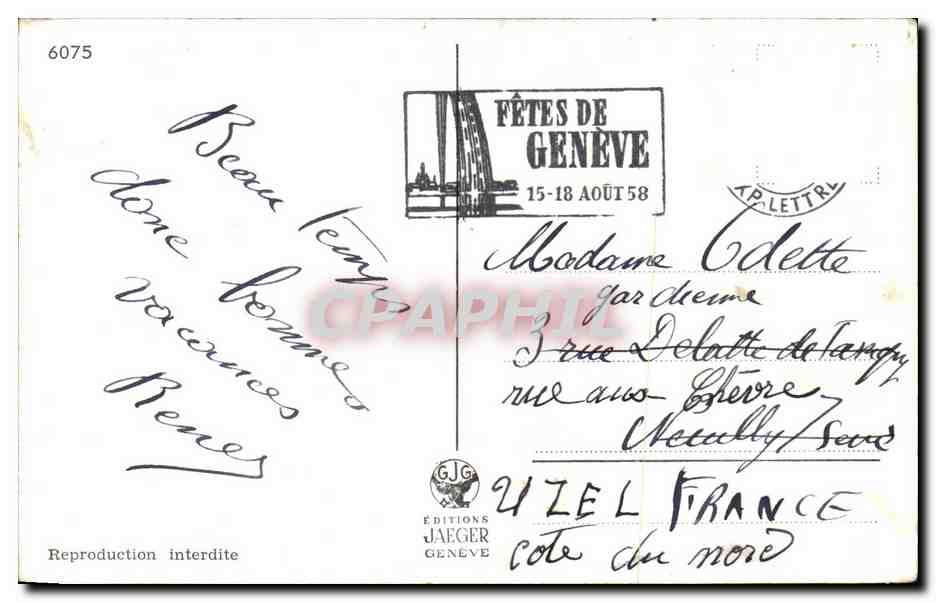 6075
Beau Temps
donc bonnes
vacances
Renez
FÊTES DE
GENÈVE
15-18 AOÛT 58
XP. LETTRE
Madame Odette
gardienne
3 rue Delatte de Tassigny
rue aux Chèvre
Neuilly/Seine
UZEL FRANCE
Cote du nord
GJG
ÉDITIONS
JAEGER
GENÈVE
Reproduction interdite
CPAPHIL